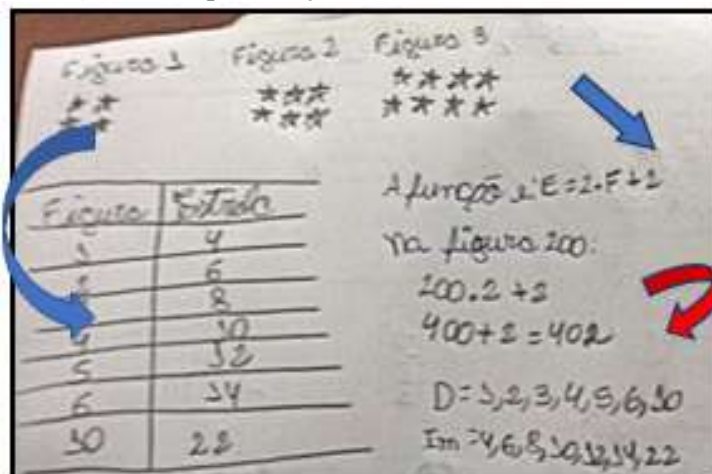 Figura 1 Figura 2 Figura 3
Figura Estrela
1 4
2 6
3 8
4 10
5 12
6 14
10 22
A função é: E=2.F+2
na figura 200:
200.2+2
400+2=402
D=1,2,3,4,5,6,10
Im=4,6,8,10,12,14,22